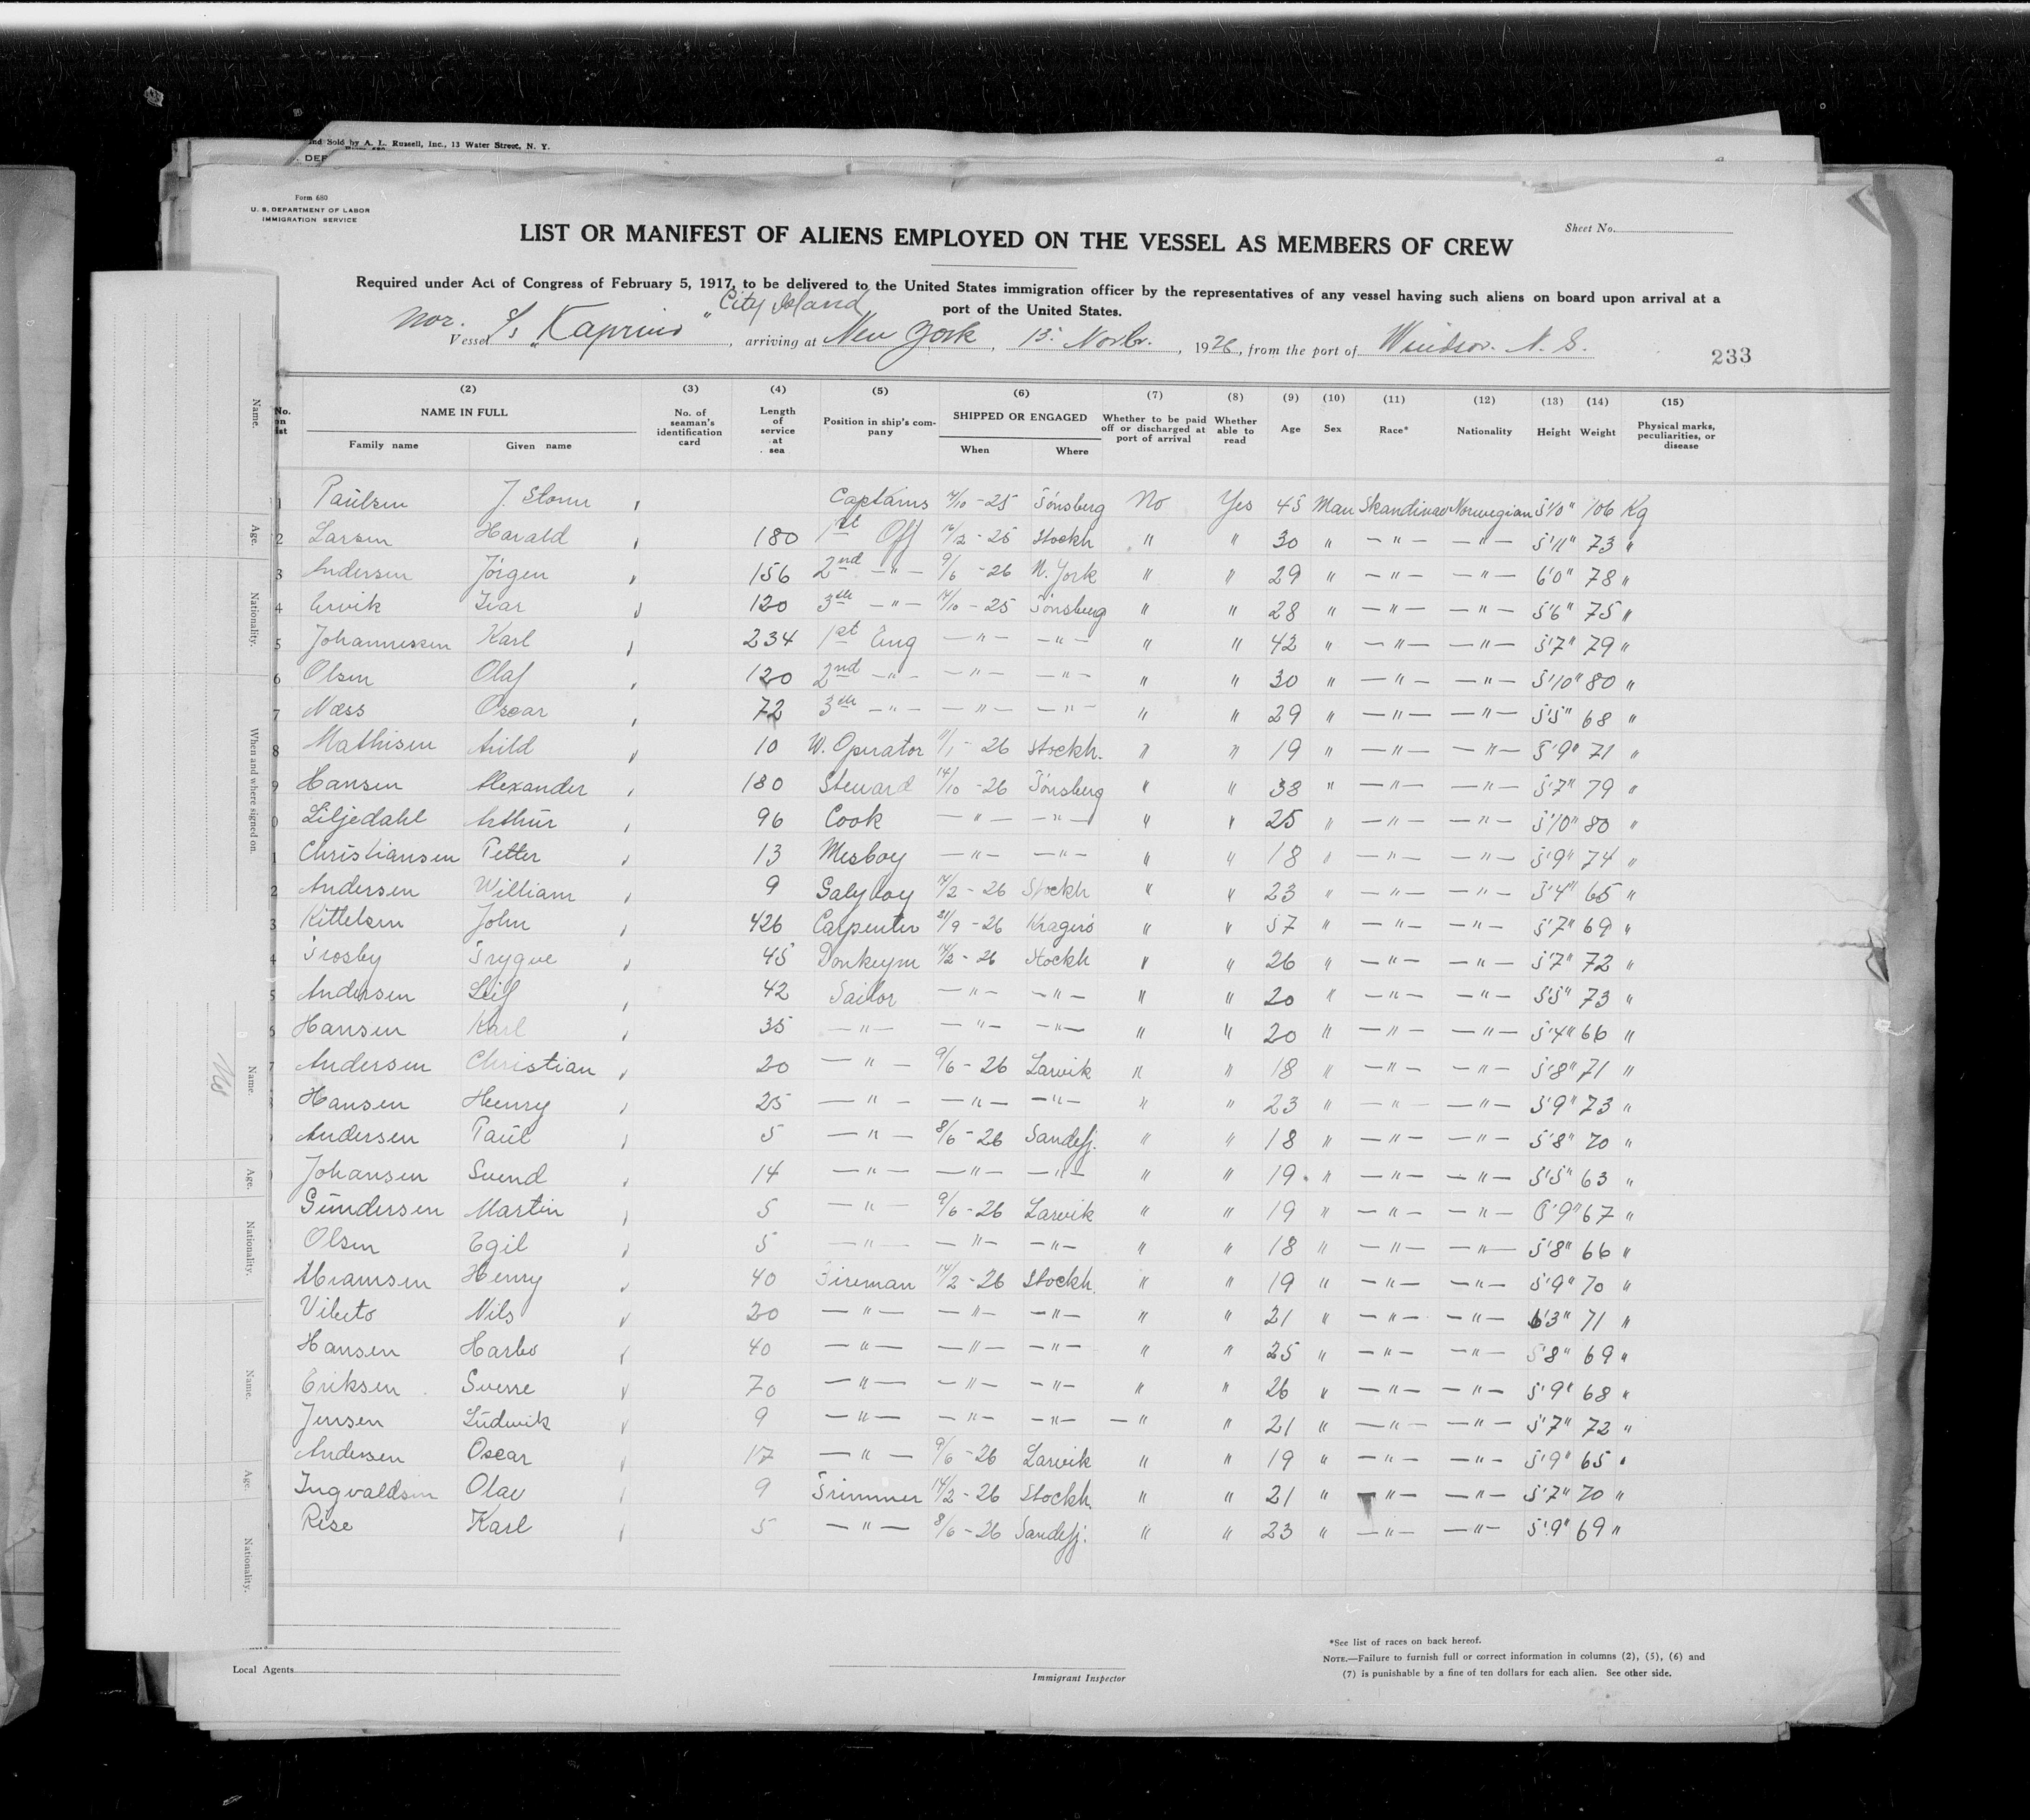 and Sold by A. L. Russell, Inc., 13 Water Street, N. Y.
. DEP
Form 680
U. S. DEPARTMENT OF LABOR
IMMIGRATION SERVICE
Sheet No.
LIST OR MANIFEST OF ALIENS EMPLOYED ON THE VESSEL AS MEMBERS OF CREW
Required under Act of Congress of February 5, 1917, to be delivered to the United States immigration officer by the representatives of any vessel having such aliens on board upon arrival at a
port of the United States.
City Island
Nor. Vessel S/s "Kaprino", arriving at New York, 15. Novbr., 1926, from the port of Windsor. N. S.
233
No. on list (2) NAME IN FULL Family name Given name (3) No. of seaman's identification card (4) Length of service at sea (5) Position in ship's company (6) SHIPPED OR ENGAGED When Where (7) Whether to be paid off or discharged at port of arrival (8) Whether able to read (9) Age (10) Sex (11) Race* (12) Nationality (13) Height (14) Weight (15) Physical marks, peculiarities, or disease
1 Paulsen J. Storm Captains 14/10 - 25 Tönsberg No Yes 45 Man Skandinav Norwegian 5'10" 106 Kg
2 Larsen Harald 180 1st Off 16/12 - 25 Stockh " " 30 " — " — — " — 5'11" 73 "
3 Andersen Jörgen 156 2nd — " — 9/6 - 26 N. York " " 29 " — " — — " — 6'0" 78 "
4 Ervik Ivar 120 3th — " — 14/10 - 25 Tönsberg " " 28 " — " — — " — 5'6" 75 "
5 Johannessen Karl 234 1st Eng — " — — " — " " 42 " — " — — " — 5'7" 79 "
6 Olsen Olaf 120 2nd — " — — " — — " — " " 30 " — " — — " — 5'10" 80 "
7 Næss Oscar 72 3th — " — — " — — " — " " 29 " — " — — " — 5'5" 68 "
8 Mathisen Arild 10 W. Operator 11/1 - 26 Stockh. " " 19 " — " — — " — 5'9" 71 "
9 Hansen Alexander 180 Steward 14/10 - 26 Tönsberg " " 38 " — " — — " — 5'7" 79 "
0 Liljedahl Arthur 96 Cook — " — — " — " " 25 " — " — — " — 5'10" 80 "
1 Christiansen Petter 13 Mesboy — " — — " — " " 18 " — " — — " — 5'9" 74 "
2 Andersen William 9 Galyboy 14/2 - 26 Stockh " " 23 " — " — — " — 5'4" 65 "
3 Kittelsen John 426 Carpenter 21/9 - 26 Kragerö " " 57 " — " — — " — 5'7" 69 "
4 Trosby Trygve 45 Donkeym 14/2 - 26 Stockh " " 26 " — " — — " — 5'7" 72 "
5 Andersen Leif 42 Sailor — " — — " — " " 20 " — " — — " — 5'5" 73 "
6 Hansen Karl 35 — " — — " — — " — " " 20 " — " — — " — 5'4" 66 "
7 Andersen Christian 20 — " — 9/6 - 26 Larvik " " 18 " — " — — " — 5'8" 71 "
Hansen Henry 25 — " — — " — — " — " " 23 " — " — — " — 5'9" 73 "
Andersen Paul 5 — " — 8/6 - 26 Sandefj. " " 18 " — " — — " — 5'8" 70 "
Johansen Svend 14 — " — — " — — " — " " 19 " — " — — " — 5'5" 63 "
Gundersen Martin 5 — " — 9/6 - 26 Larvik " " 19 " — " — — " — 5'9" 67 "
Olsen Egil 5 — " — — " — — " — " " 18 " — " — — " — 5'8" 66 "
Abramsen Henry 40 Fireman 14/2 - 26 Stockh. " " 19 " — " — — " — 5'9" 70 "
Vibeto Nils 20 — " — — " — — " — " " 21 " — " — — " — 6'3" 71 "
Hansen Harbo 40 — " — — " — — " — " " 25 " — " — — " — 5'8" 69 "
Eriksen Sverre 70 — " — — " — — " — " " 26 " — " — — " — 5'9" 68 "
Jensen Ludwik 9 — " — — " — — " — — " " 21 " — " — — " — 5'7" 72 "
Andersen Oscar 17 — " — 9/6 - 26 Larvik " " 19 " — " — — " — 5'9" 65 "
Ingvaldsen Olav 9 Trimmer 14/2 - 26 Stockh. " " 21 " — " — — " — 5'7" 70 "
Rise Karl 5 — " — 8/6 - 26 Sandefj. " " 23 " — " — — " — 5'9" 69 "
Local Agents
Immigrant Inspector
*See list of races on back hereof.
NOTE.—Failure to furnish full or correct information in columns (2), (5), (6) and
(7) is punishable by a fine of ten dollars for each alien. See other side.
Name.
Age.
Nationality.
When and where signed on.
Name.
Age.
Nationality.
Name.
Age.
Nationality.